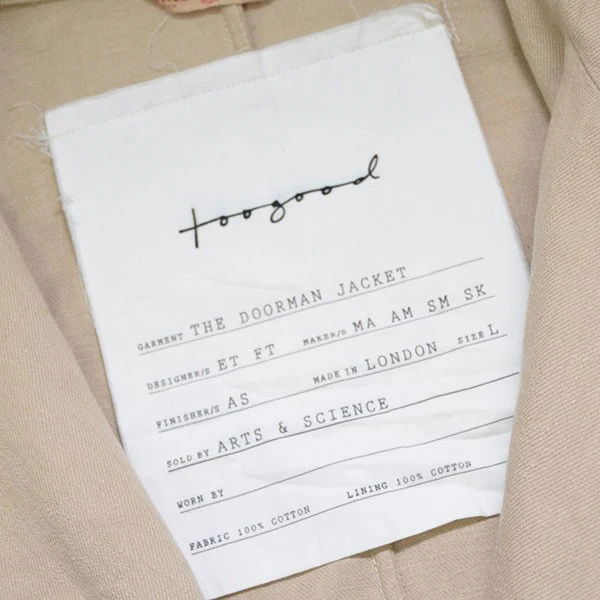 toogood
GARMENT THE DOORMAN JACKET
DESIGNER/S ET FT MAKER/S MA AM SM SK
FINISHER/S AS MADE IN LONDON SIZE L
SOLD BY ARTS & SCIENCE
WORN BY
FABRIC 100% COTTON LINING 100% COTTON